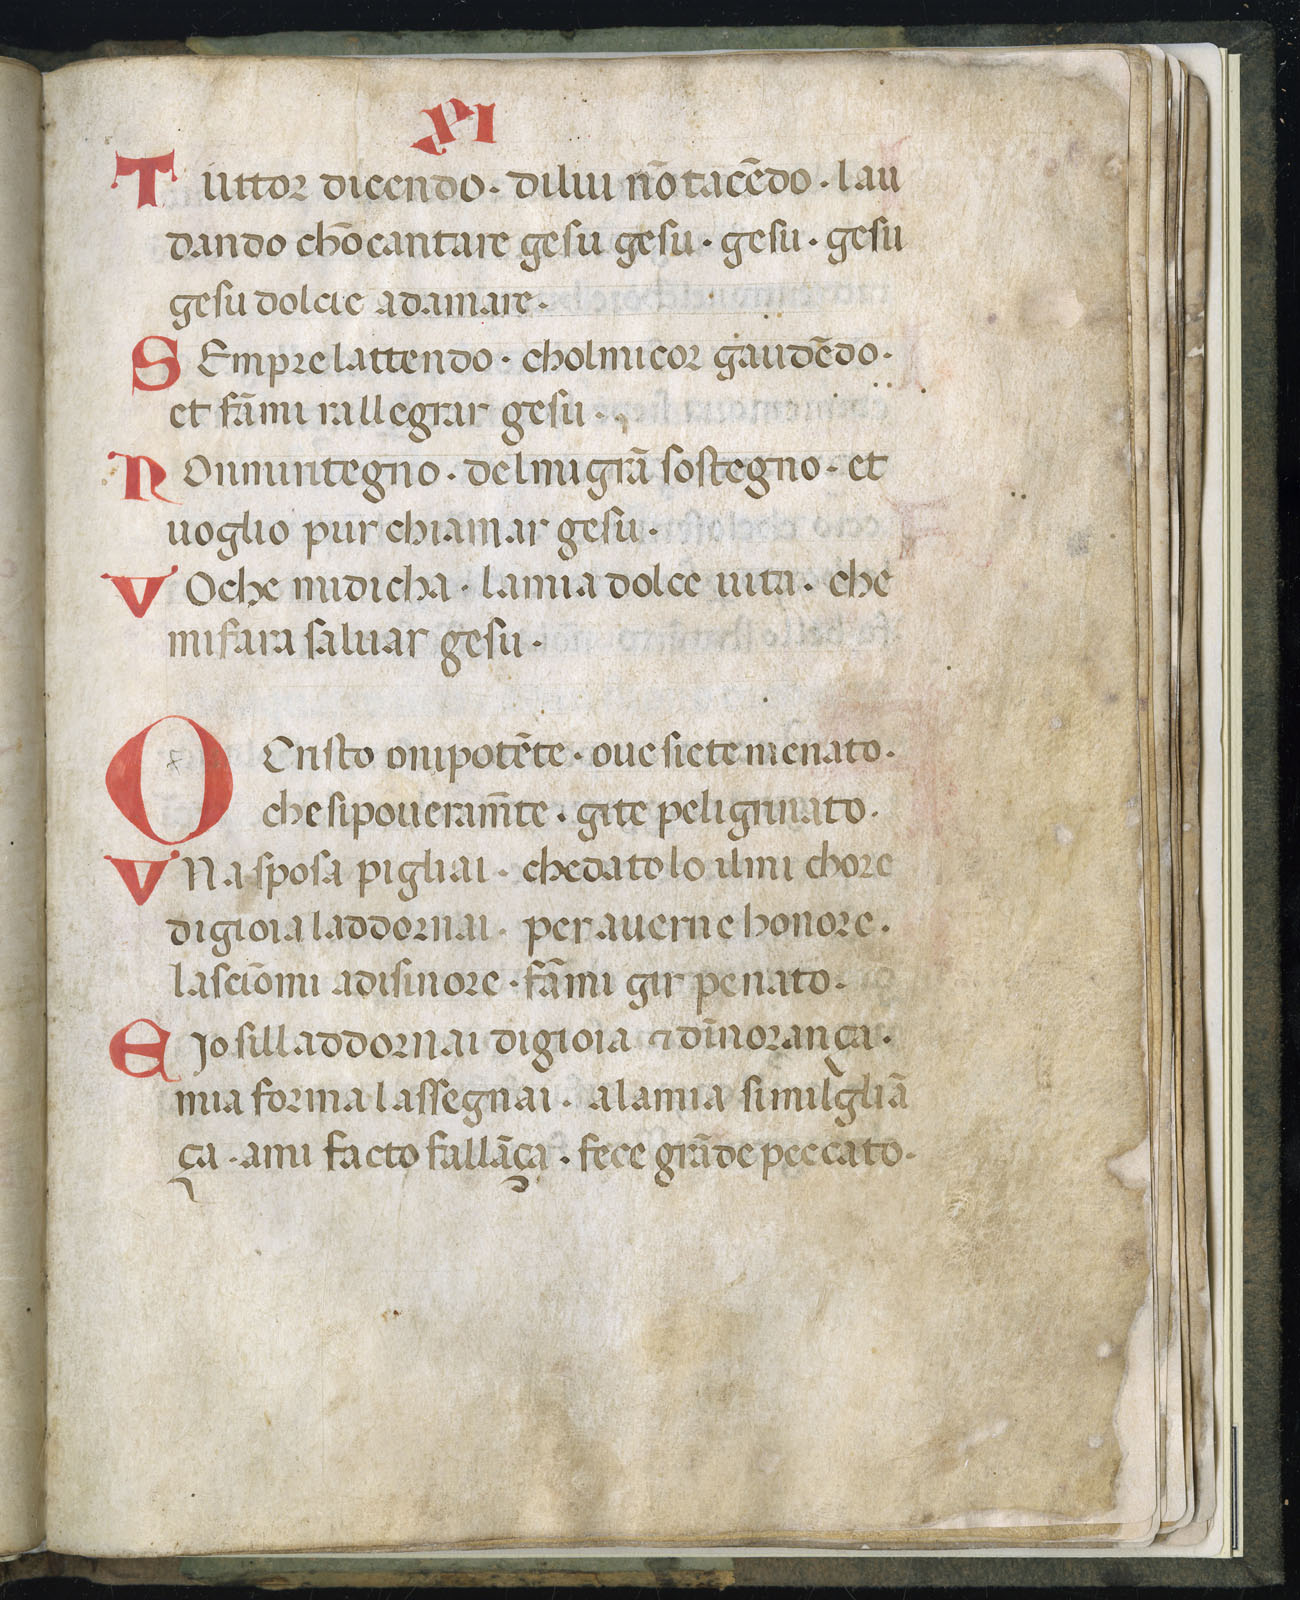 XI
Tuttor dicendo · dilui nō tacēdo · lau
dando chōcantare gesu gesu · gesu · gesu
gesu dolcie adamare ·
SEmpre lattendo · cholmicor gaudēdo ·
et fāmi rallegrar gesu ·
NOnmintegno · delmi grā sostegno · et
uoglio pur chiamar gesu ·
VOche midicha · lamia dolce uita · che
mifara saluar gesu ·
O Cristo onipotēte · oue siete menato ·
che sipoueram̄te · gite peligrinato ·
VNa sposa pigliai · chedato lo ilmi chore
digioia laddornai · per auerne honore ·
lasciōmi adisinore · fāmi gir penato ·
EJo silladdornai digioia ⁊ dīnorança ·
mia forma lassegnai · alamia similgliā
ça · ami facto fallāça · fece grāde peccato ·